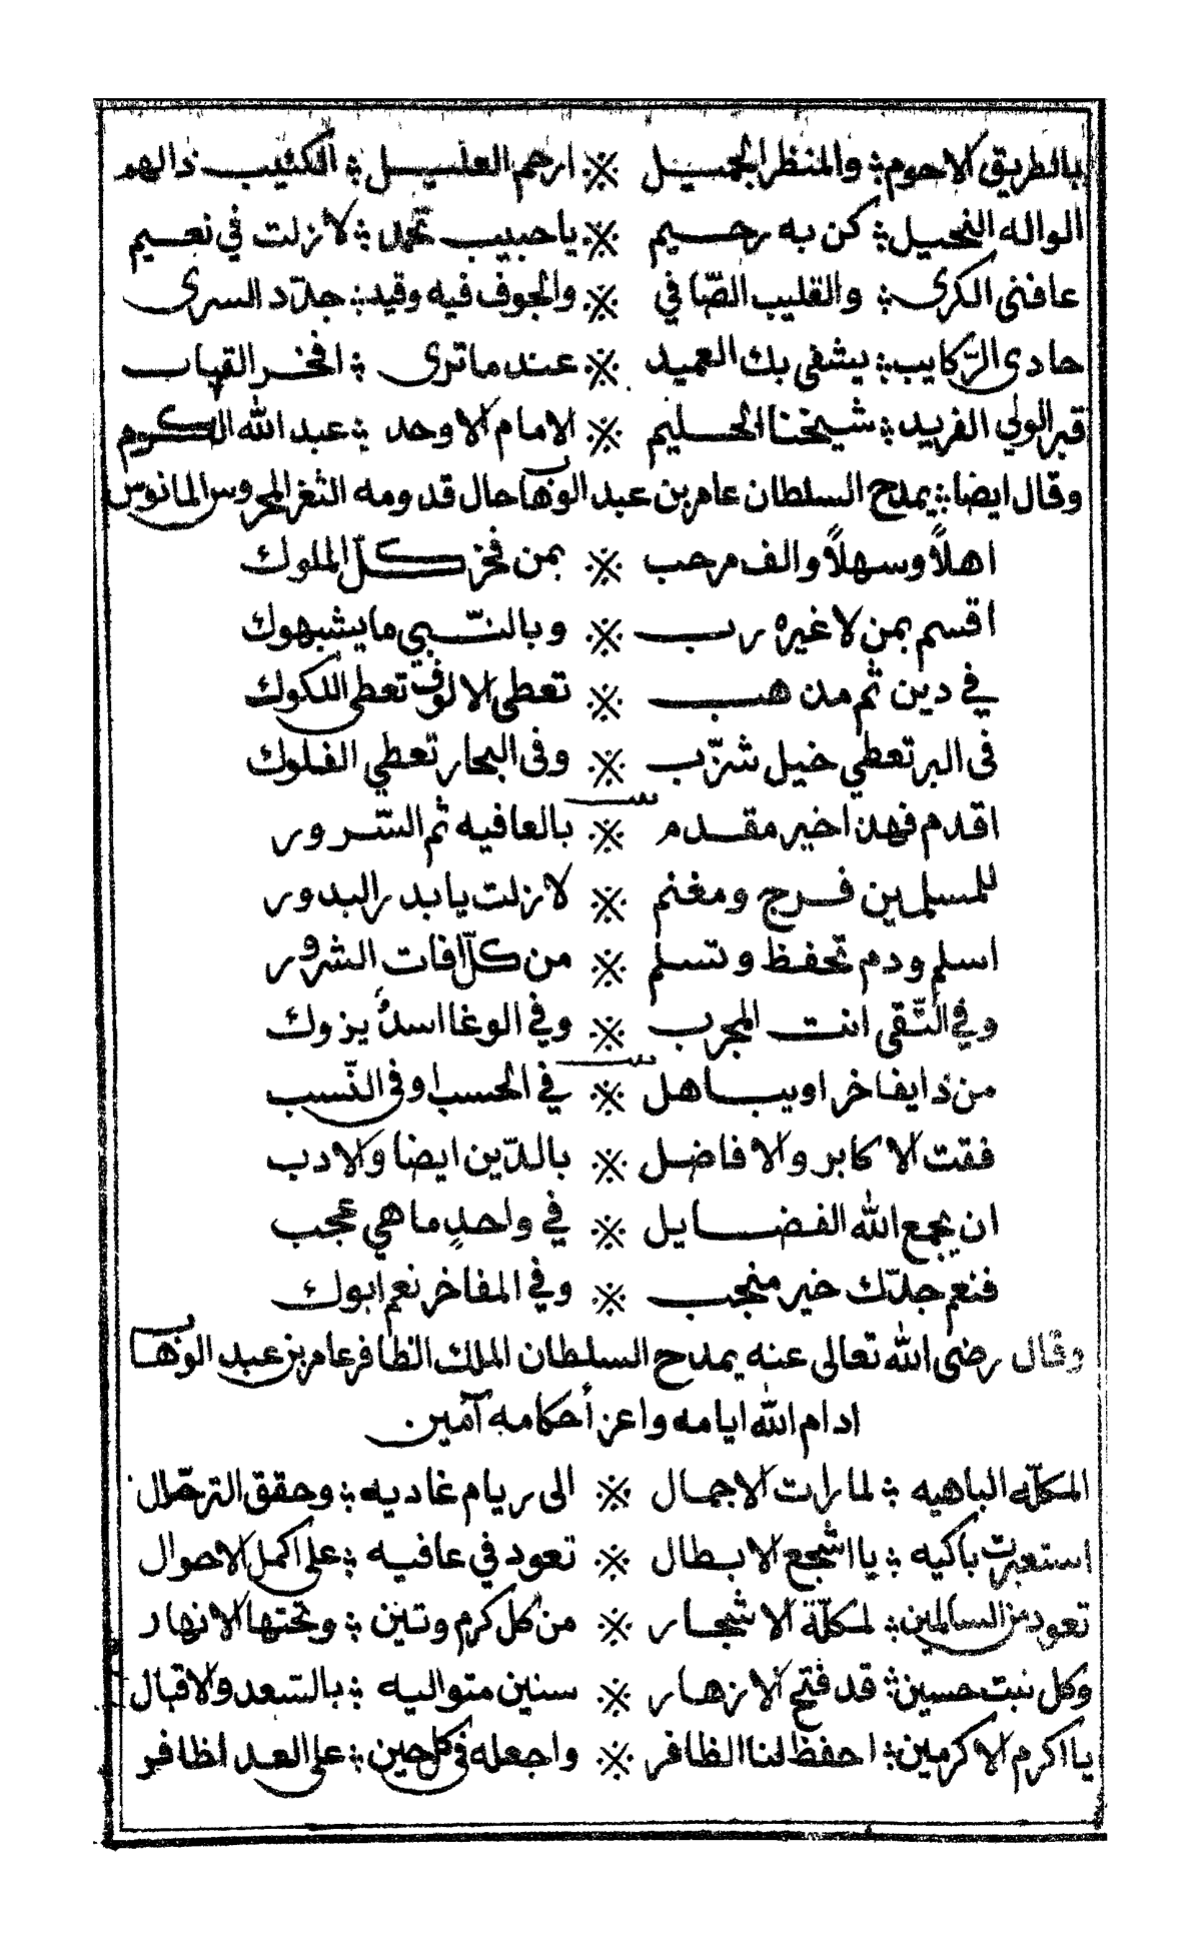 بالطريق الاحوم ؞ والمنظر الجميل ※ ارحم العليل ؞ الكئيب ذا الهم
الواله النحيل ؞ كن به رحيم ※ يا حبيب تحمد ؞ لا زلت في نعيم
عافني الكرى ؞ والقليب الصّافي ※ والجوف فيه وقيد ؞ جدّد السرى
حادى الرّكايب ؞ يشفى بك العميد ※ عند ما ترى ؞ افخر القباب
قبر الولي الفريد ؞ شيخنا الحليم ※ الامام الاوحد ؞ عبد الله الكرم
وقال ايضا ؞ يمدح السلطان عامر بن عبد الوهاب حال قدومه الثغر المحروس المانوس
اهلاً وسهلاً والف مرحب ※ بمن فخر كلّ الملوك
اقسم بمن لا غيره رب ※ وبالنّبي ما يشبهوك
في دين ثم مذهب ※ تعطى الالوف تعطى اللكوك
فى البر تعطي خيل شزّب ※ وفى البحار تعطي الفلوك
اقدم فهذا خير مقدم ※ بالعافيه ثم السّرور
للمسلمين فرج ومغنم ※ لا زلت يا بدر البدور
اسلم ودم تحفظ وتسلم ※ من كلّ افات الشرور
وفي التّقى انت المجرب ※ وفي الوغا اسدٌ يزوك
من ذا يفاخر او يباهل ※ في الحسب او فى النّسب
فقت الاكابر والافاضل ※ بالدّين ايضا والادب
ان يجمع الله الفضايل ※ في واحدٍ ما هي عجب
فنعم جدّك خير منجب ※ وفي المفاخر نعم ابوك
وقال رضى الله تعالى عنه يمدح السلطان الملك الظافر عامر بن عبد الوهاب
ادام الله ايامه واعز أحكامه آمين.
المكلّه الباهيه ؞ لما رات الاجمال ※ الى ريام غاديه ؞ وحقق الترحّال
استعبرت باكيه ؞ يا اشجع الابطال ※ تعود في عافيه ؞ على اكمل الاحوال
تعود من السالمين ؞ لمكلّة الاشجار ※ من كل كرم وتين ؞ وتحتها الانهار
وكل نبت حسين ؞ قد فتح الازهار ※ سنين متواليه ؞ بالسّعد والاقبال
يا اكرم الاكرمين ؞ احفظ لنا الظافر ※ واجعله فى كل حين ؞ على العدا ظافر